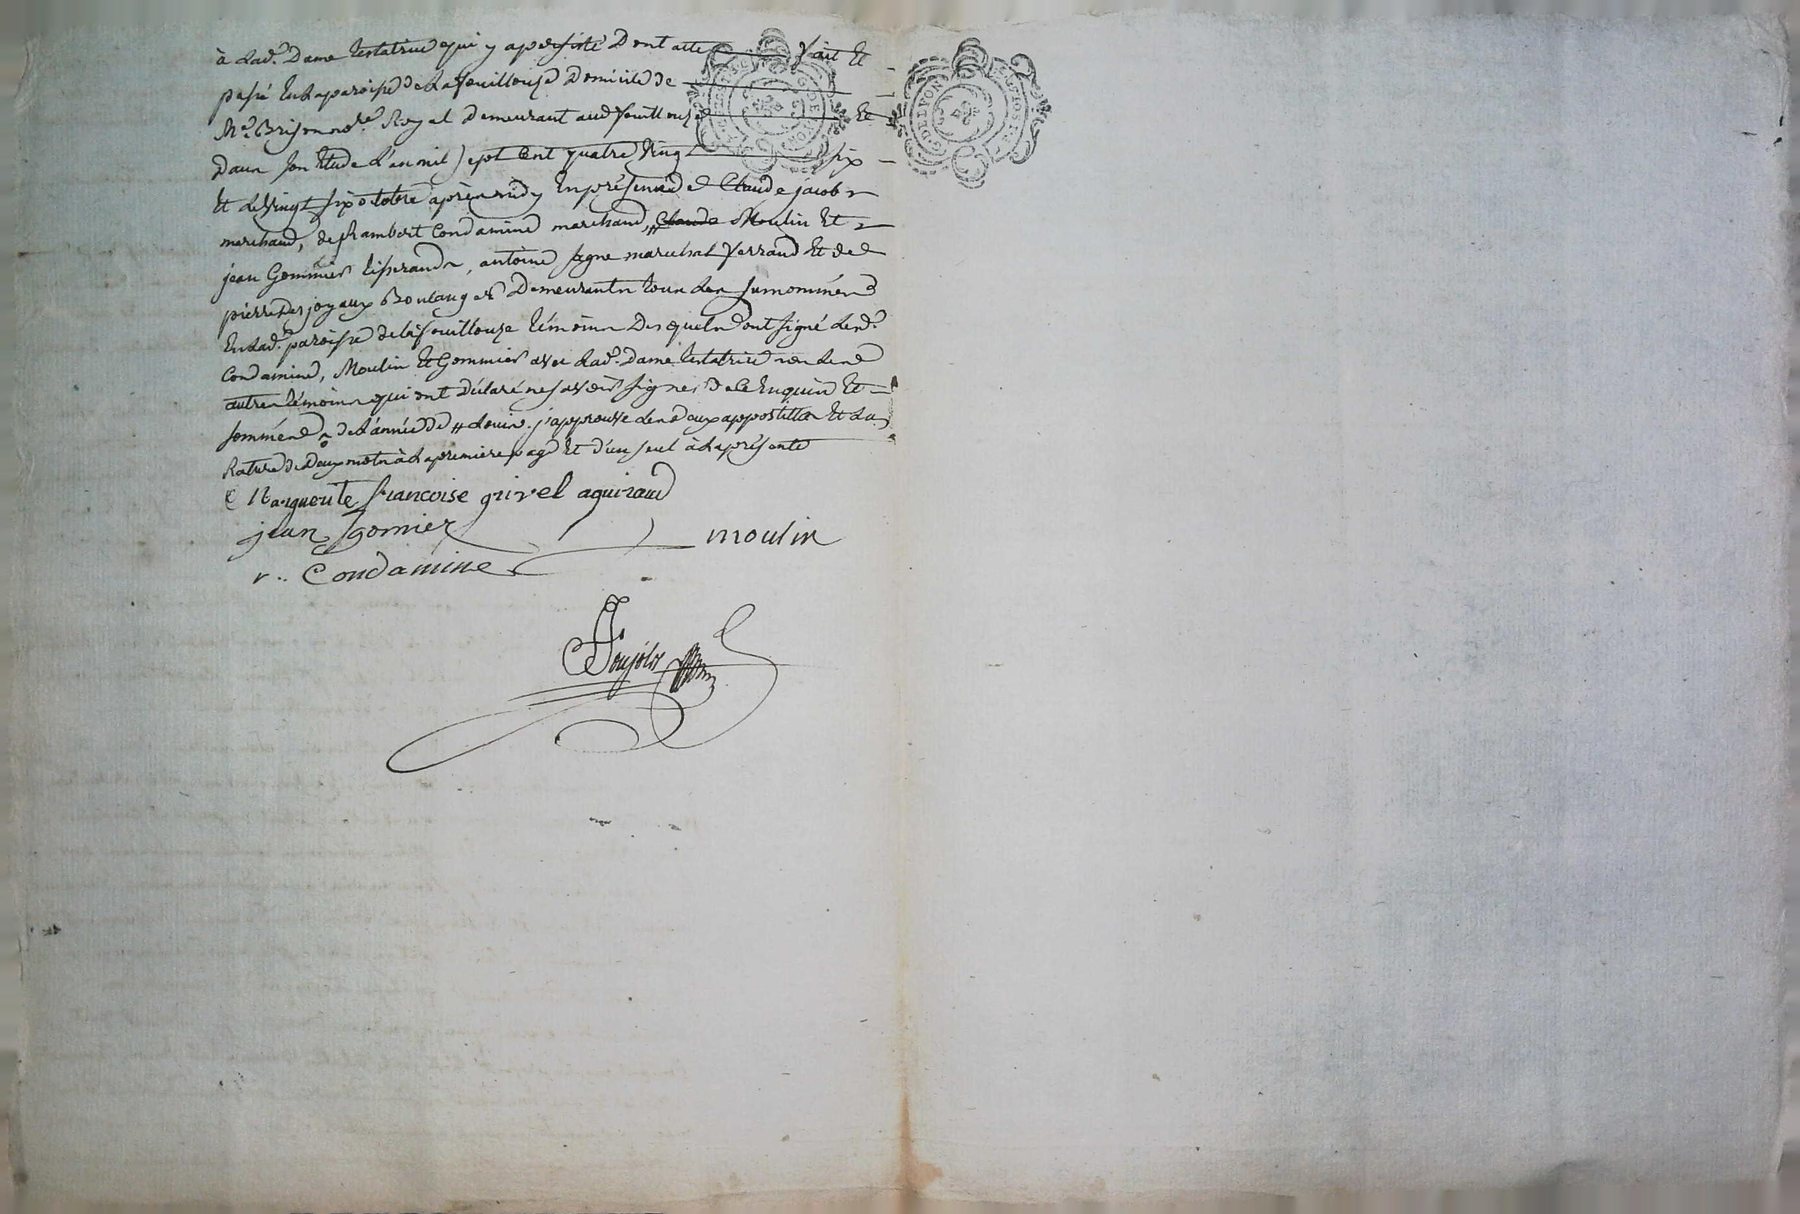 à lad.e Dame testatrice qui y a persisté Dont acte fait et
passé En la paroisse de La fouillouze Domicile de
Me. Brison no.re Royal Demeurant aud. fouillouze et
Dans son Etude L'an mil sept Cent quatre vingt six
et le vingt six octobre après midy En présence de Claude jacob
marchand, de Rambert Condamine marchand, Claude Moulin et
jean Gommier tisserands, antoine marechal ferrand et de
pierre Desjoyaux Boulanger Demeurants tous les surnommés
En lad.e paroisse de la fouillouze témoins Desquels ont signé lesd.
Condamine, Moulin et Gommier avec lad.e Dame testatrice non les
autres témoins qui ont déclaré ne savoir signer de ce Enquis et
sommés de L'année de j'approuve les deux appostilles et la
Rature de Deux mots à la première page et d'un seul à la présente
Marguerite francoise grivel aguiraud
jean gomier moulin
r.. Condamine